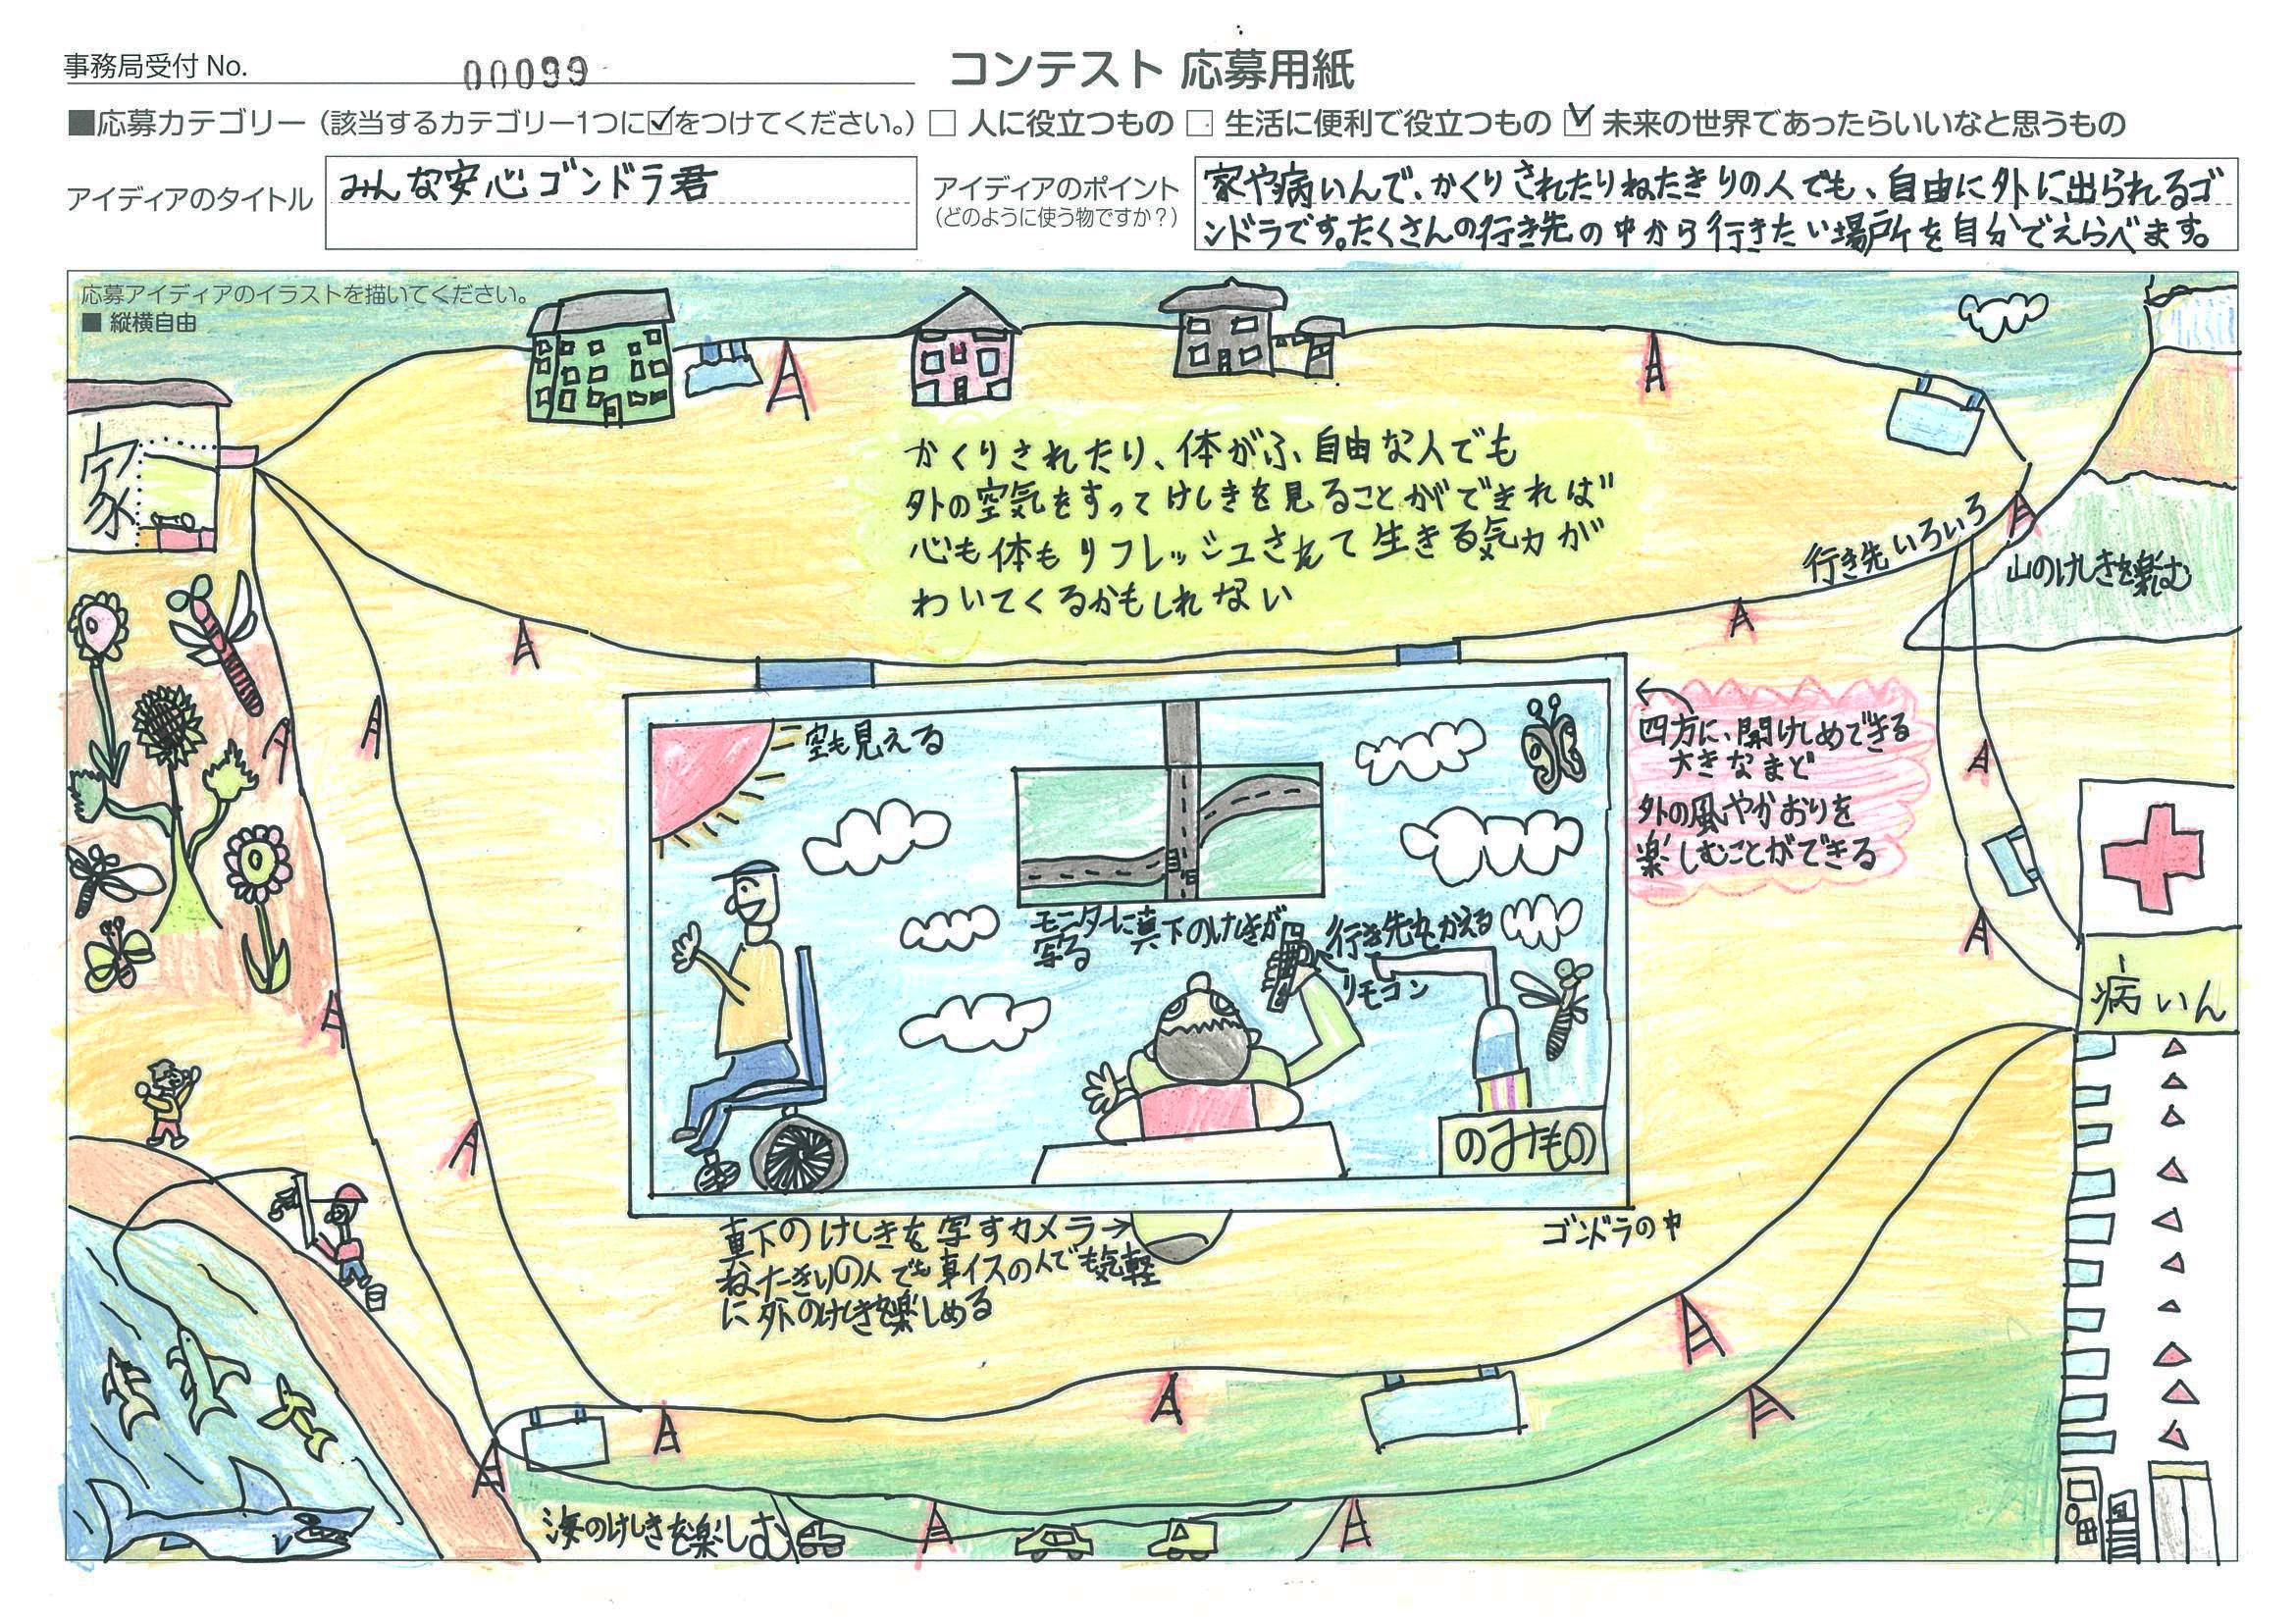 事務局受付 No. 00099
コンテスト 応募用紙
■応募カテゴリー（該当するカテゴリー1つに☑をつけてください。）□ 人に役立つもの □ 生活に便利で役立つもの ☑ 未来の世界であったらいいなと思うもの
アイディアのタイトル
みんな安心ゴンドラ君
アイディアのポイント
（どのように使う物ですか？）
家や病いんで、かくりされたりねたきりの人でも、自由に外に出られるゴ
ンドラです。たくさんの行き先の中から行きたい場所を自分でえらべます。
応募アイディアのイラストを描いてください。
■ 縦横自由
家
かくりされたり、体がふ自由な人でも
外の空気をすってけしきを見ることができれば
心も体もリフレッシュされて生きる気力が
わいてくるかもしれない
行き先いろいろ
山のけしきを楽しむ
空も見える
四方に、開けしめできる
大きなまど
外の風やかおりを
楽しむことができる
モニターに真下のけしきが
写る
行き先をかえる
リモコン
病いん
のみもの
真下のけしきを写すカメラ→
ねたきりの人でも車イスの人でも気軽
に外のけしきを楽しめる
ゴンドラの中
海のけしきを楽しむ